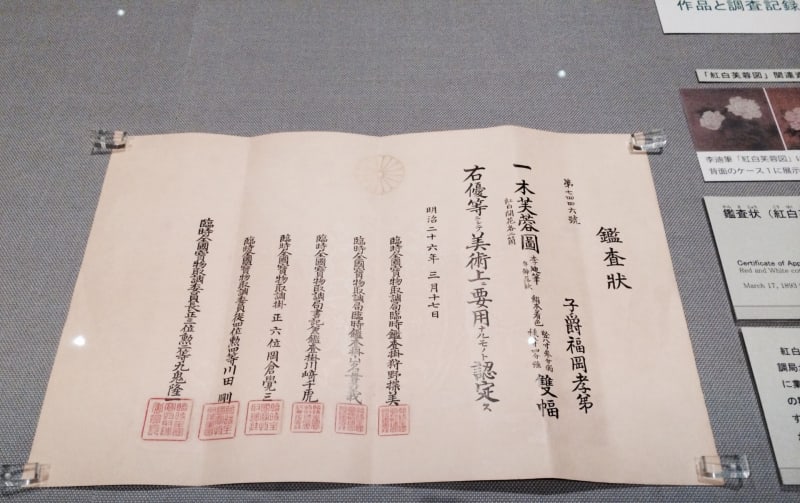 鑑査状
第七四四六號
子爵福岡孝弟
一木芙蓉圖 李迪筆 絹本着色 雙幅
紅白開花各一箇
右優等ニシテ美術上ノ要用ナルモノト認定ス
明治二十六年三月十七日
臨時全國寶物取調局臨時鑑査掛狩野探美
臨時全國寶物取調局臨時鑑査掛山名貫義
臨時全國寶物取調局書記兼鑑査掛川崎千虎
臨時全國寶物取調掛正六位岡倉覺三
臨時全國寶物取調委員從四位勲四等川田剛
臨時全國寶物取調委員長正三位勲二等九鬼隆一
作品と調査記録
「紅白芙蓉図」関連資
李迪筆「紅白芙蓉図」に
背面のケース1に展示
鑑査状（紅白
Certificate of App
Red and White co
March 17, 1893
紅白
調局
に
の
す